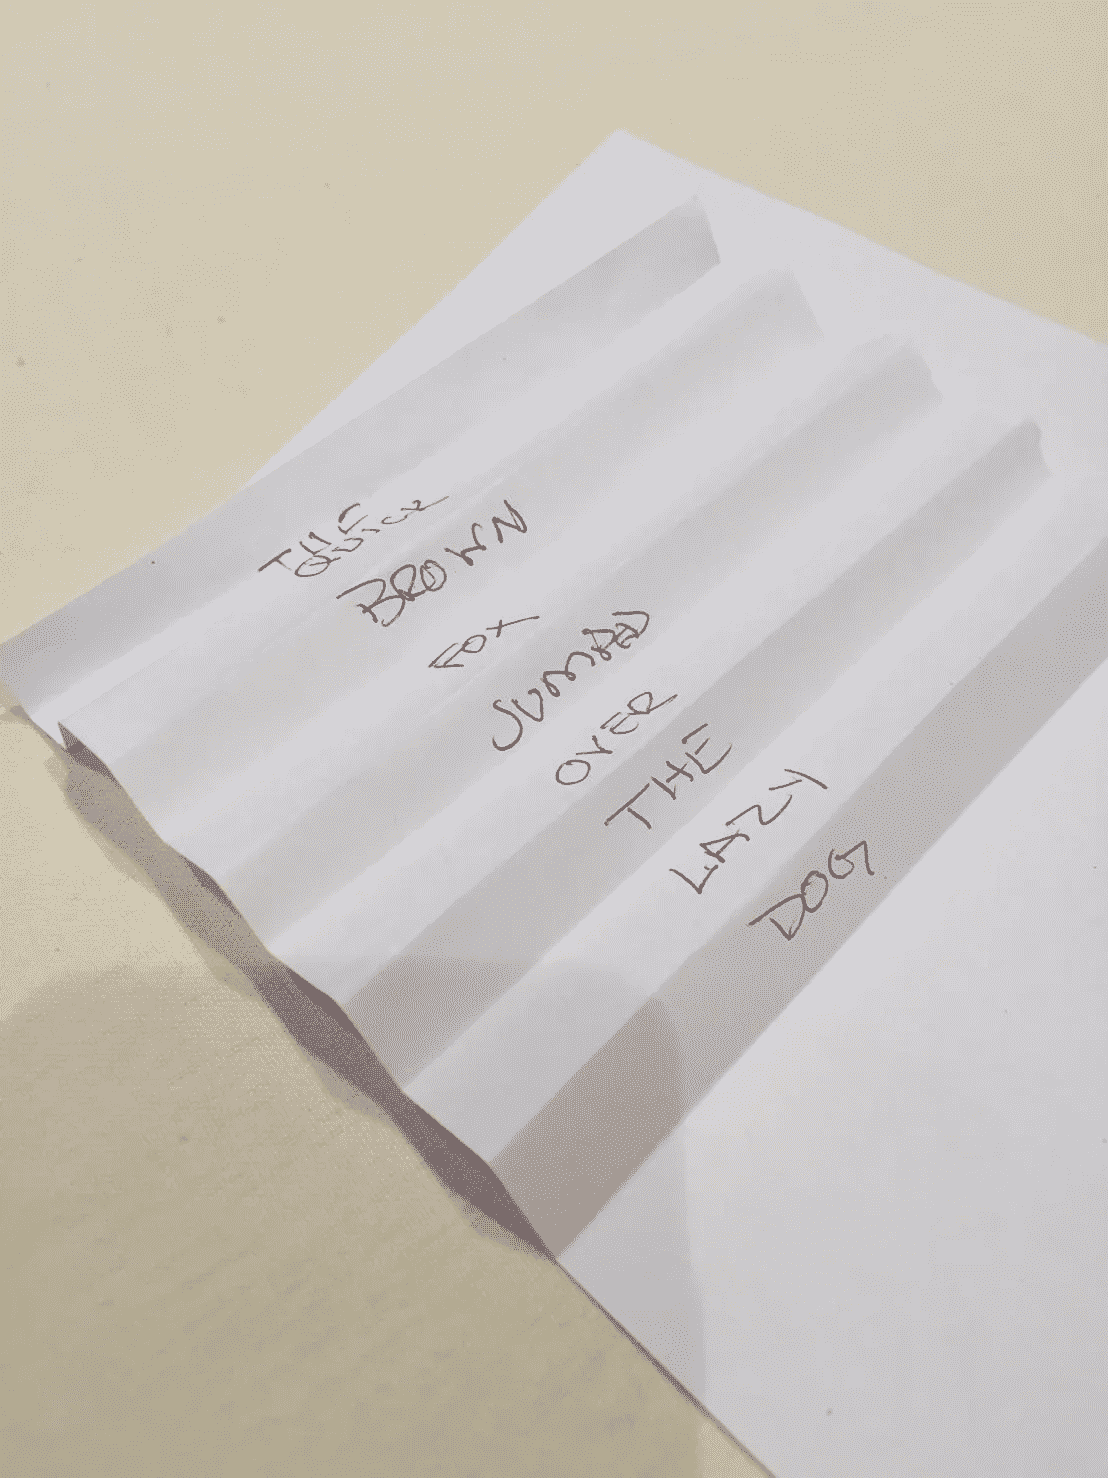 THE
QUICK
BROWN
FOX
JUMPED
OVER
THE
LAZY
DOG